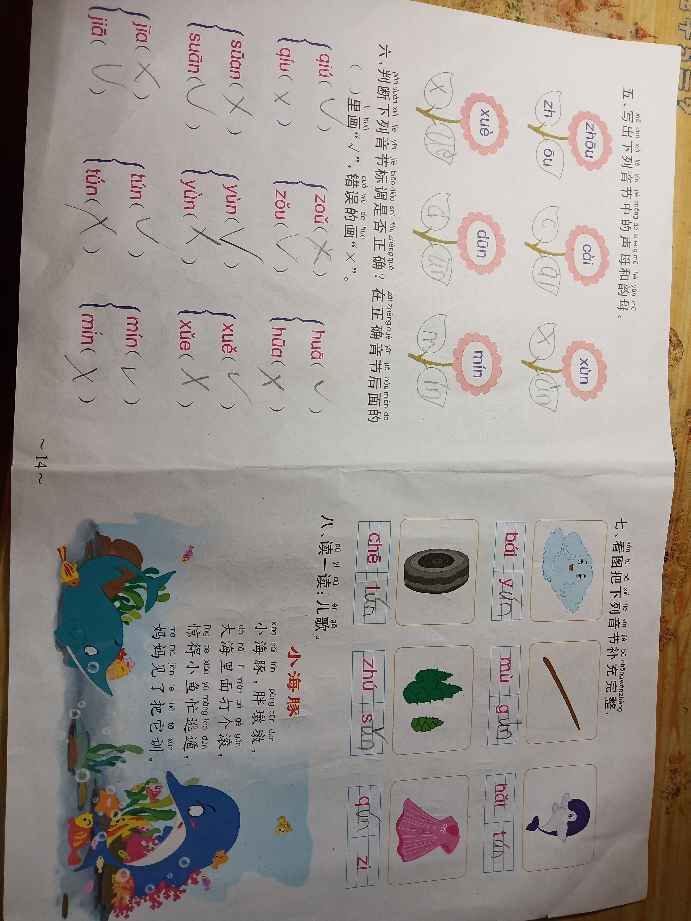 五、写出下列音节中的声母和韵母。
zhōu
cài
xùn
zh ōu
xuè
dūn
mín
六、判断下列音节标调是否正确？在正确音节后面的
( )里画“√”，错误的画“×”。
qiú(√) zoǔ(×) huā(√)
qíu(×) zǒu(√) hūa(×)
sūan(×) yún(√) xuě(√)
suān(√) yǘn(×) xǔe(×)
jīa(×) tún(√) mín(√)
jiā(√) tǘn(×)
~ 14 ~
七、看图把下列音节补充完整。
bái yún mù gùn hǎi tún
chē lún zhú sǔn qún zi
八、读一读：儿歌。
小海豚
小海豚，胖墩墩，
大海里面打个滚，
惊得小鱼忙逃遁，
妈妈见了把它训。